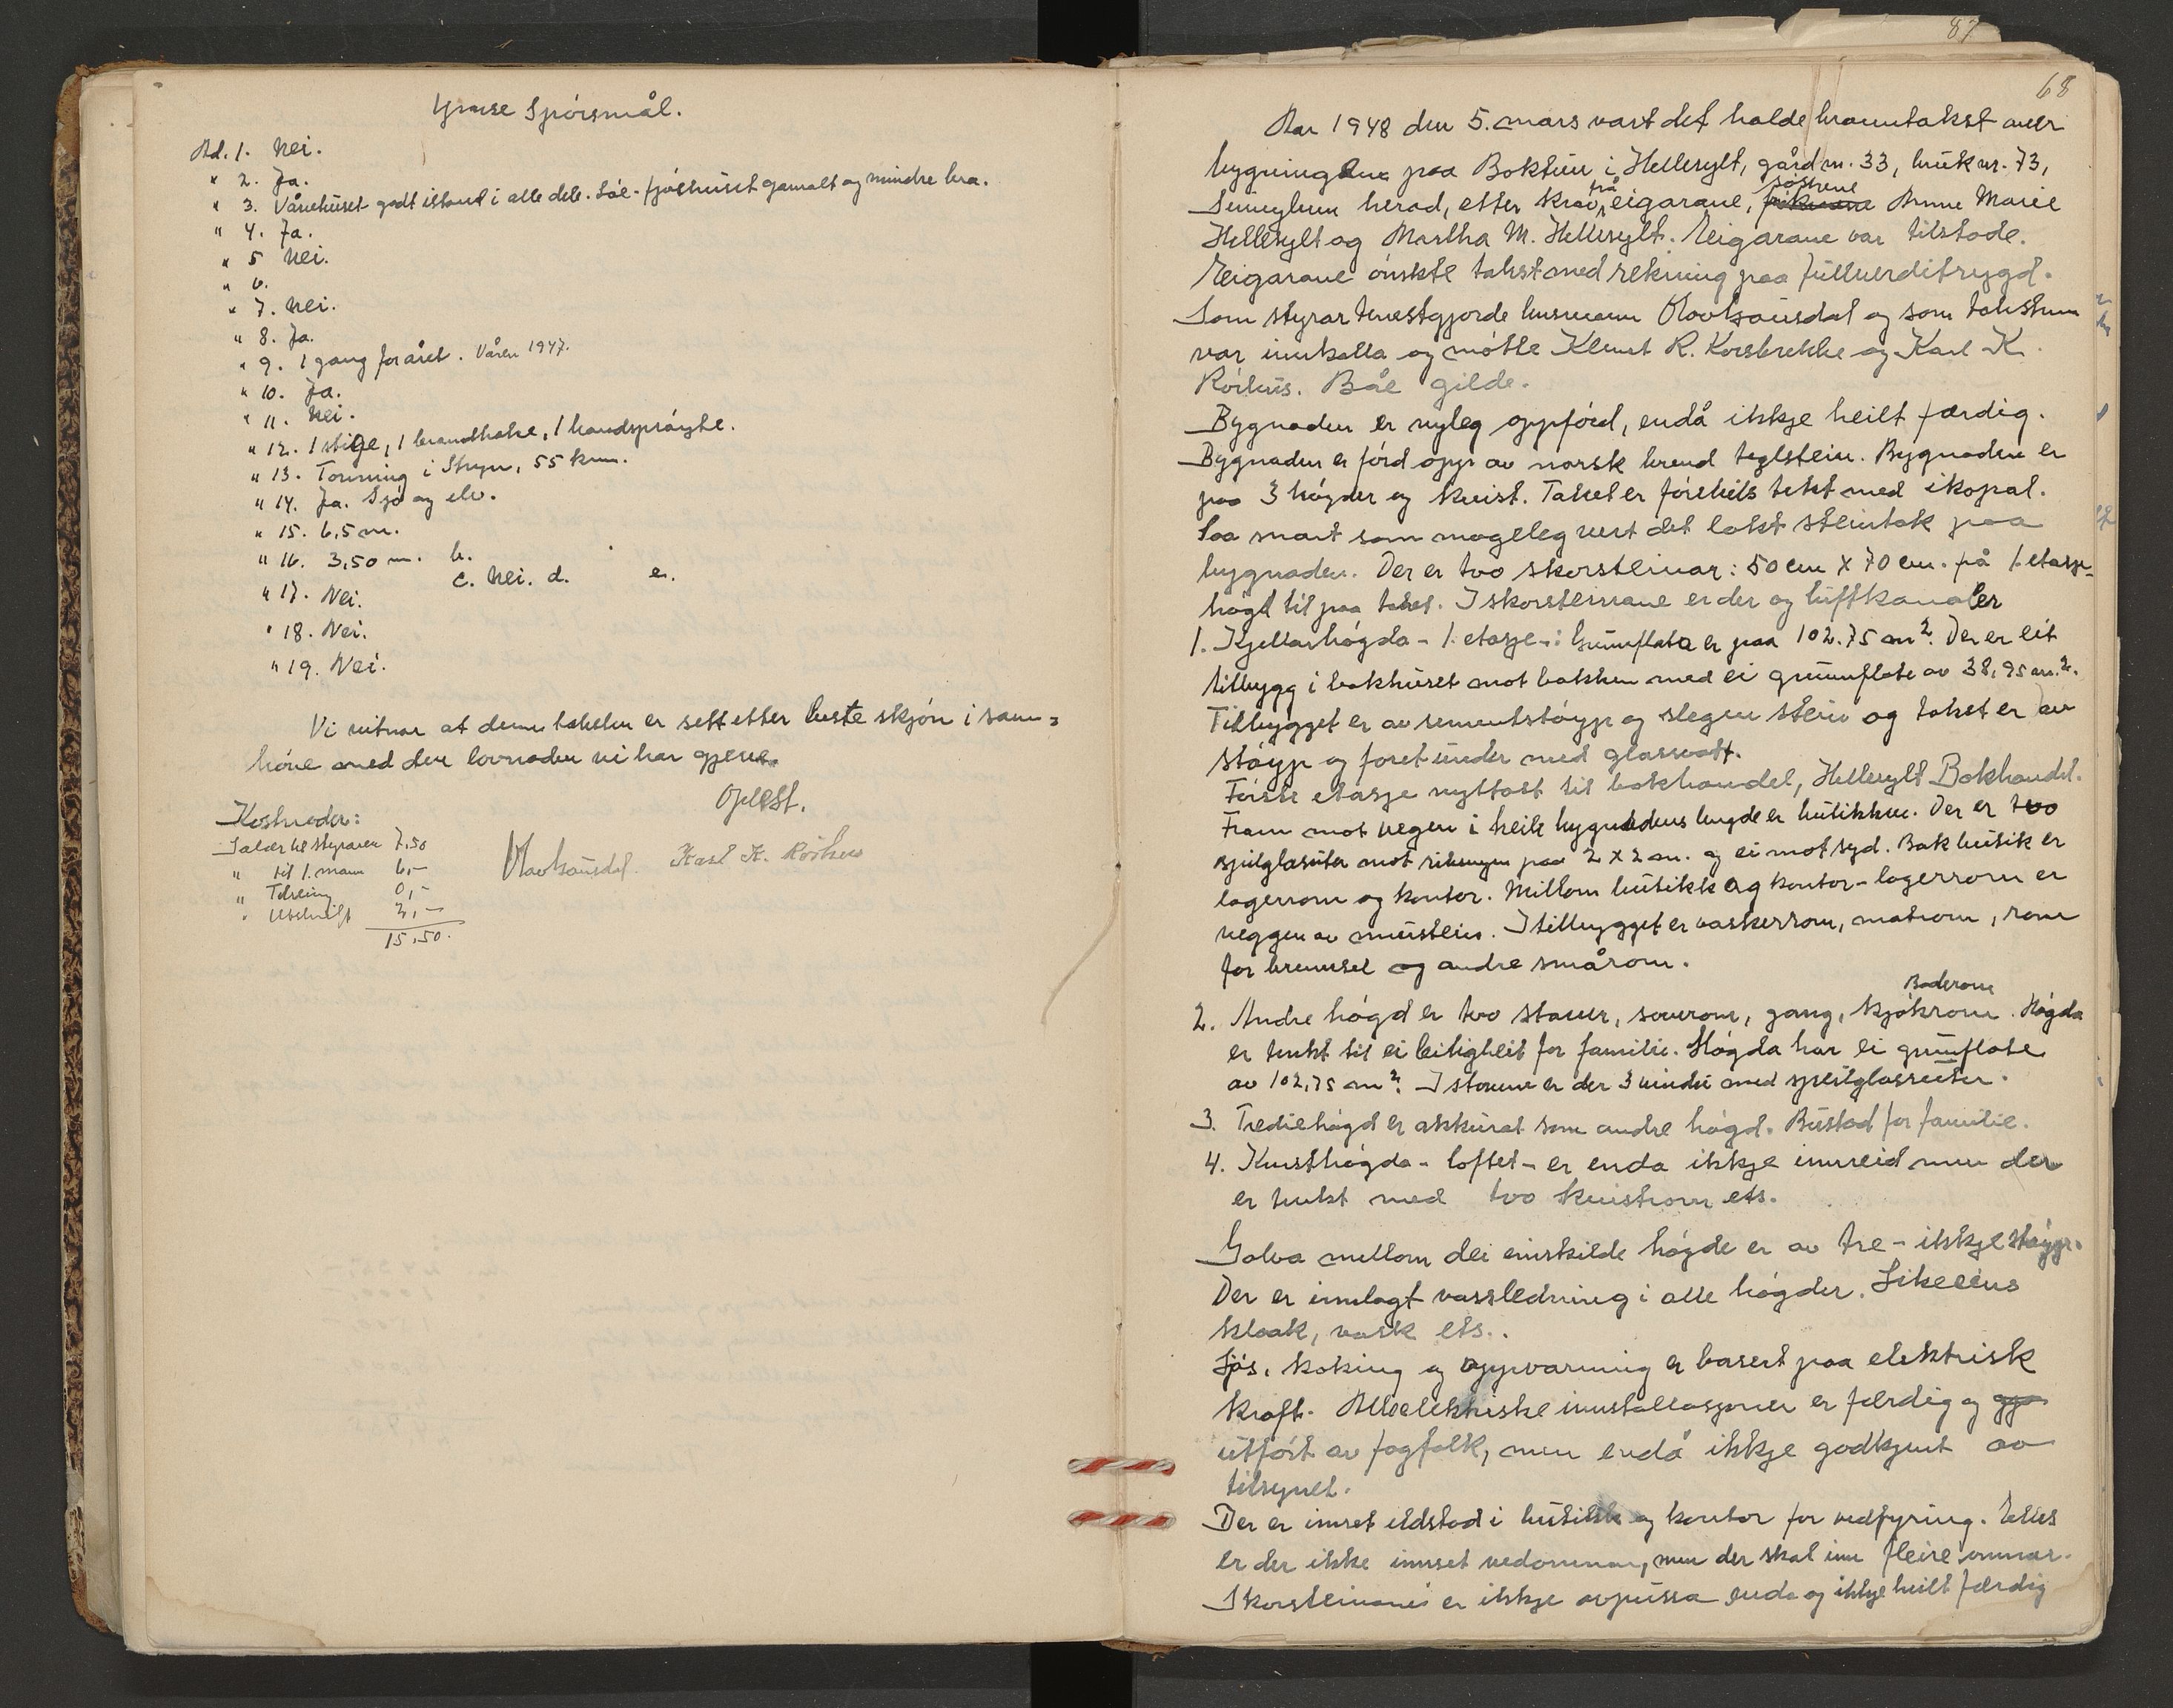 Ymse Spórsmål.
Ad. 1. Nei.
" 2. Ja.
" 3. Vånehuset godt istand i alle dele. Lóe-fjóshuset gamalt og mindre bra.
" 4. Ja.
" 5 Nei.
" 6.
" 7. Nei.
" 8. Ja.
" 9. 1 gang for året. Våren 1947.
" 10. Ja.
" 11. Nei.
" 12. 1 stige, 1 brandhake, 1 handspróyte.
" 13. Tonning i Stryn, 55 km.
" 14. Ja. Sjó og elv.
" 15. 6,5 m.
" 16. 3,50 m. b.
c. Nei. d. e.
" 17. Nei.
" 18. Nei.
" 19. Nei.
Vi vitnar at denne taksten er sett etter beste skjón i sam=
hóve med den lovnaden vi har gjeve.
Opplest.
Kostnader:
Salær til styraren 7,50
" til 1. mann 6,-
" Tilseing 0,-
" Utskrift 2,-
15,50.
Olav Lausdal. Karl K. Rórhus
87
68
Aar 1948 den 5. mars vart det halde branntakst over
bygningane paa Boktun i Hellesylt, gård nr. 33, bruk nr. 73,
Sunnylven herad, etter krav frå eigarane, sóstrene Anne Marie
Hellesylt og Martha M. Hellesylt. Eigarane var tilstade.
Eigarane ónskte takst med rekning paa fullverditrygd.
Som styrar tenestgjorde lensmann Olav Lausdal og som takstmenn
var innkalla og mótte Klaus R. Korsbrekke og Karl K.
Rórhus. Båe gilde.
Bygnaden er nyleg oppfórd, endå ikkje heilt færdig.
Bygnaden er fórd opp av norsk brend teglstein. Bygnaden er
paa 3 hógder og kvist. Taket er fórebils tekt med ikopal.
Saa snart som mogeleg vert det lakt steintak paa
bygnaden. Der er tvo skorsteinar: 50 cm x 70 cm. på 1. etasje-
hógd til paa taket. I skorsteinane er der og luftkanaler
1. Kjellarhógda - 1. etasje -: Grunnflata er paa 102.75 m². Der er eit
tilbygg i bakhuset mot bakken med ei grunnflate av 38,95 m².
Tilbygget er av sementstóyp og slegen stein og taket er av
stóyp og foret under med glassvatt.
Fórste etasje nyttast til bokhandel, Hellesylt Bokhandel.
Fram mot vegen i heile bygnadens lengde er butikken. Der er tvo
speilglasruter mot riksvegen paa 2 x 2 m. og ei mot syd. Bak butik er
lagerrom og kontor. Millom butikk og kontor-lagerrom er
veggen av murstein. I tilbygget er vaskerrom, matrom, rom
for brensel og andre smårom.
Baderom
2. Andre hógd er tvo stover, soverom, gang, kjókrom. Hógda
er tenkt til ei leilighеit for familie. Hógda har ei grunnflate
av 102,75 m². I stovene er der 3 vindu med speilglassruter.
3. Trediehógd er akkurat som andre hógd. Bustad for familie.
4. Kvisthógda - loftet - er enda ikkje innreid men der
er tenkt med tvo kvistrom ets.
Golva mellom dei einskilde hógde er av tre - ikkje stóyp.
Der er innlagt vassledning i alle hógder. Likeeins
kloak, vask ets..
Ljós, koking og oppvarming er basert paa elektrisk
kraft. Alle elektriske innstallasjoner er færdig og
utfórt av fagfolk, men endå ikkje godkjent av
tilsynet.
Der er innset eldstad i butikk og kontor for vedfyring. Elles
er der ikke innset vedomnar, men der skal inn fleire omnar.
Skorsteinane er ikkje avpussa enda og ikkje heilt færdig